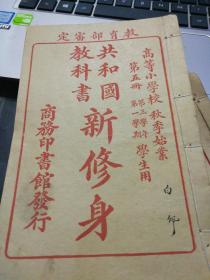 教育部審定
高等小學校 秋季始業
第五冊 第三學年 第一學期 學生用
共和國
教科書
新修身
商務印書館發行